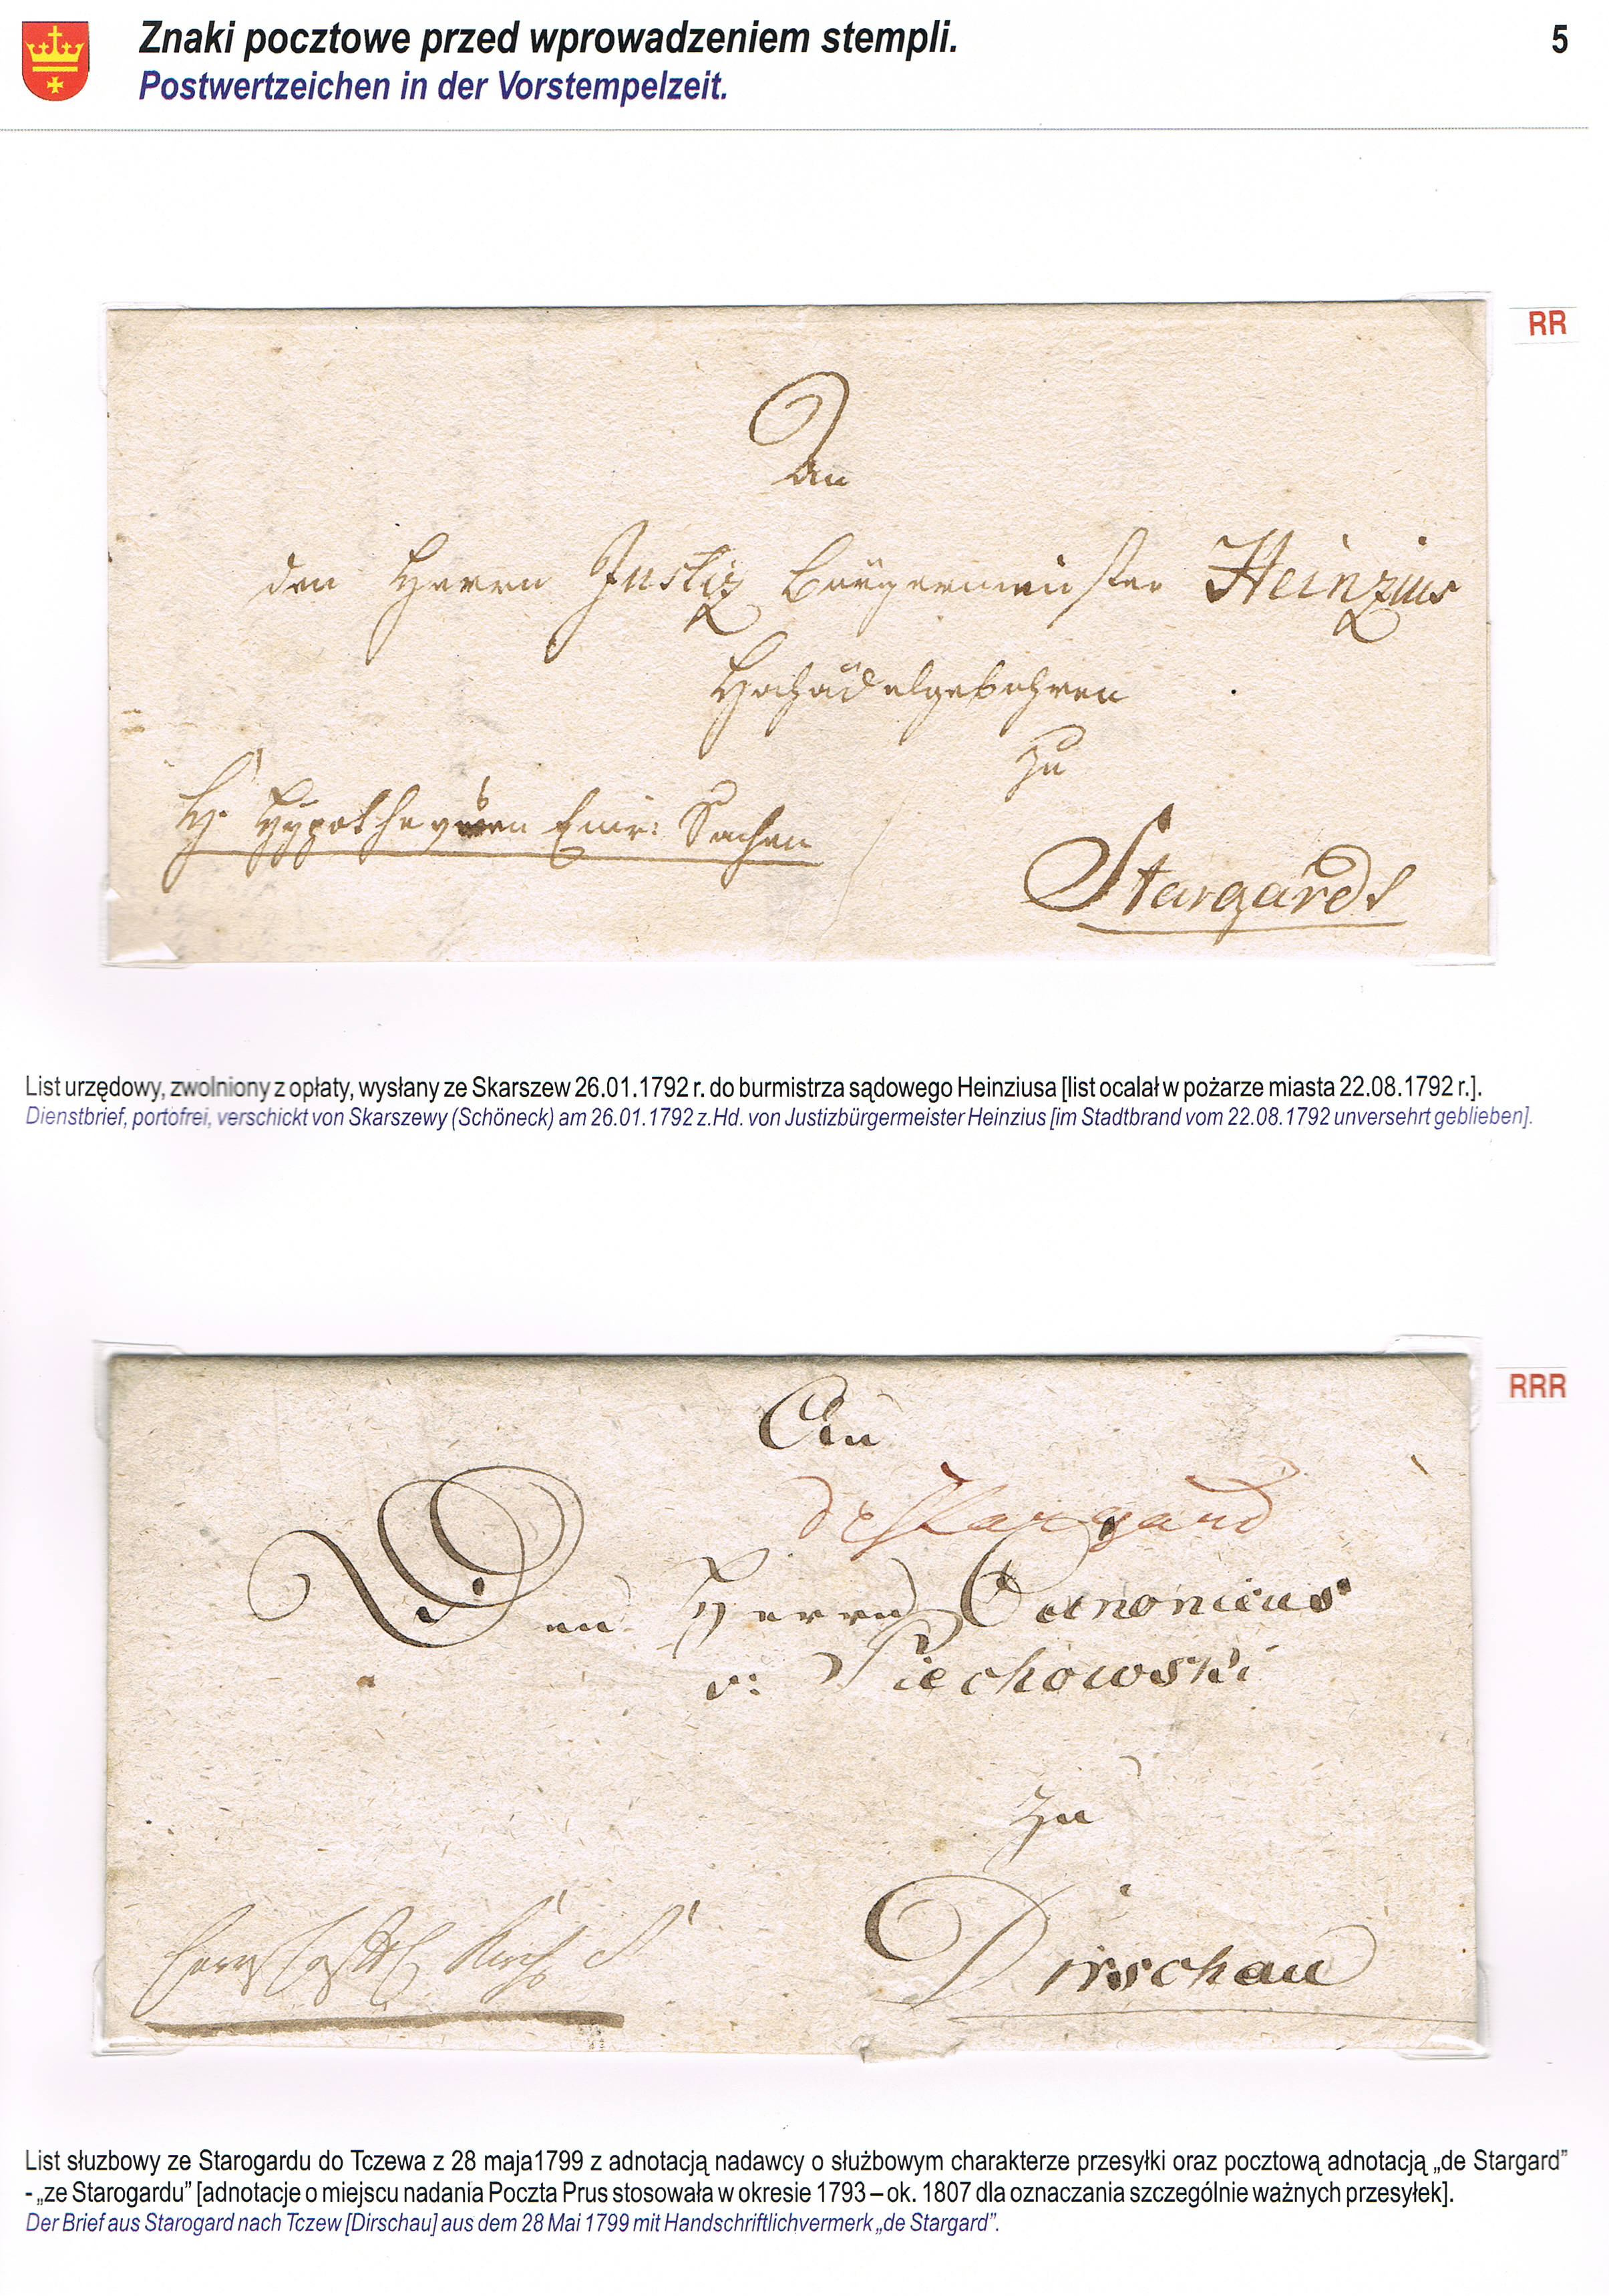 Znaki pocztowe przed wprowadzeniem stempli.
5
Postwertzeichen in der Vorstempelzeit.
RR
An
den Herrn Justiz Bürgermeister Heinzius
Hochädelgebohren
zu
H. Hypothequen Sachen
Stargardt
List urzędowy, zwolniony z opłaty, wysłany ze Skarszew 26.01.1792 r. do burmistrza sądowego Heinziusa [list ocalał w pożarze miasta 22.08.1792 r.].
Dienstbrief, portofrei, verschickt von Skarszewy (Schöneck) am 26.01.1792 z.Hd. von Justizbürgermeister Heinzius [im Stadtbrand vom 22.08.1792 unversehrt geblieben].
RRR
An
de Stargard
Den Herrn Canonicus
v: Piechowski
zu
Dirschau
List słuzbowy ze Starogardu do Tczewa z 28 maja1799 z adnotacją nadawcy o służbowym charakterze przesyłki oraz pocztową adnotacją „de Stargard”
- „ze Starogardu” [adnotacje o miejscu nadania Poczta Prus stosowała w okresie 1793 – ok. 1807 dla oznaczania szczególnie ważnych przesyłek].
Der Brief aus Starogard nach Tczew [Dirschau] aus dem 28 Mai 1799 mit Handschriftlichvermerk „de Stargard”.